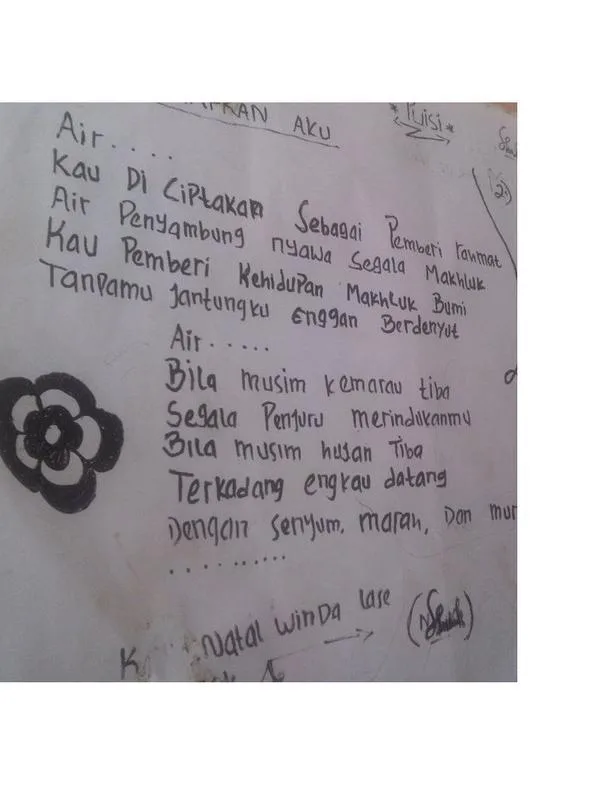 AKU
*Puisi*
Air....
Kau Di Ciptakan Sebagai Pemberi rahmat
Air Penyambung nyawa Segala Makhluk
Kau Pemberi Kehidupan Makhluk Bumi
Tanpamu Jantungku Enggan Berdenyut
Air.....
Bila musim kemarau tiba
Segala Penjuru merindukanmu
Bila musim hujan Tiba
Terkadang engkau datang
Dengan senyum, marah, Dan mur
..........
Natal Winda Lase